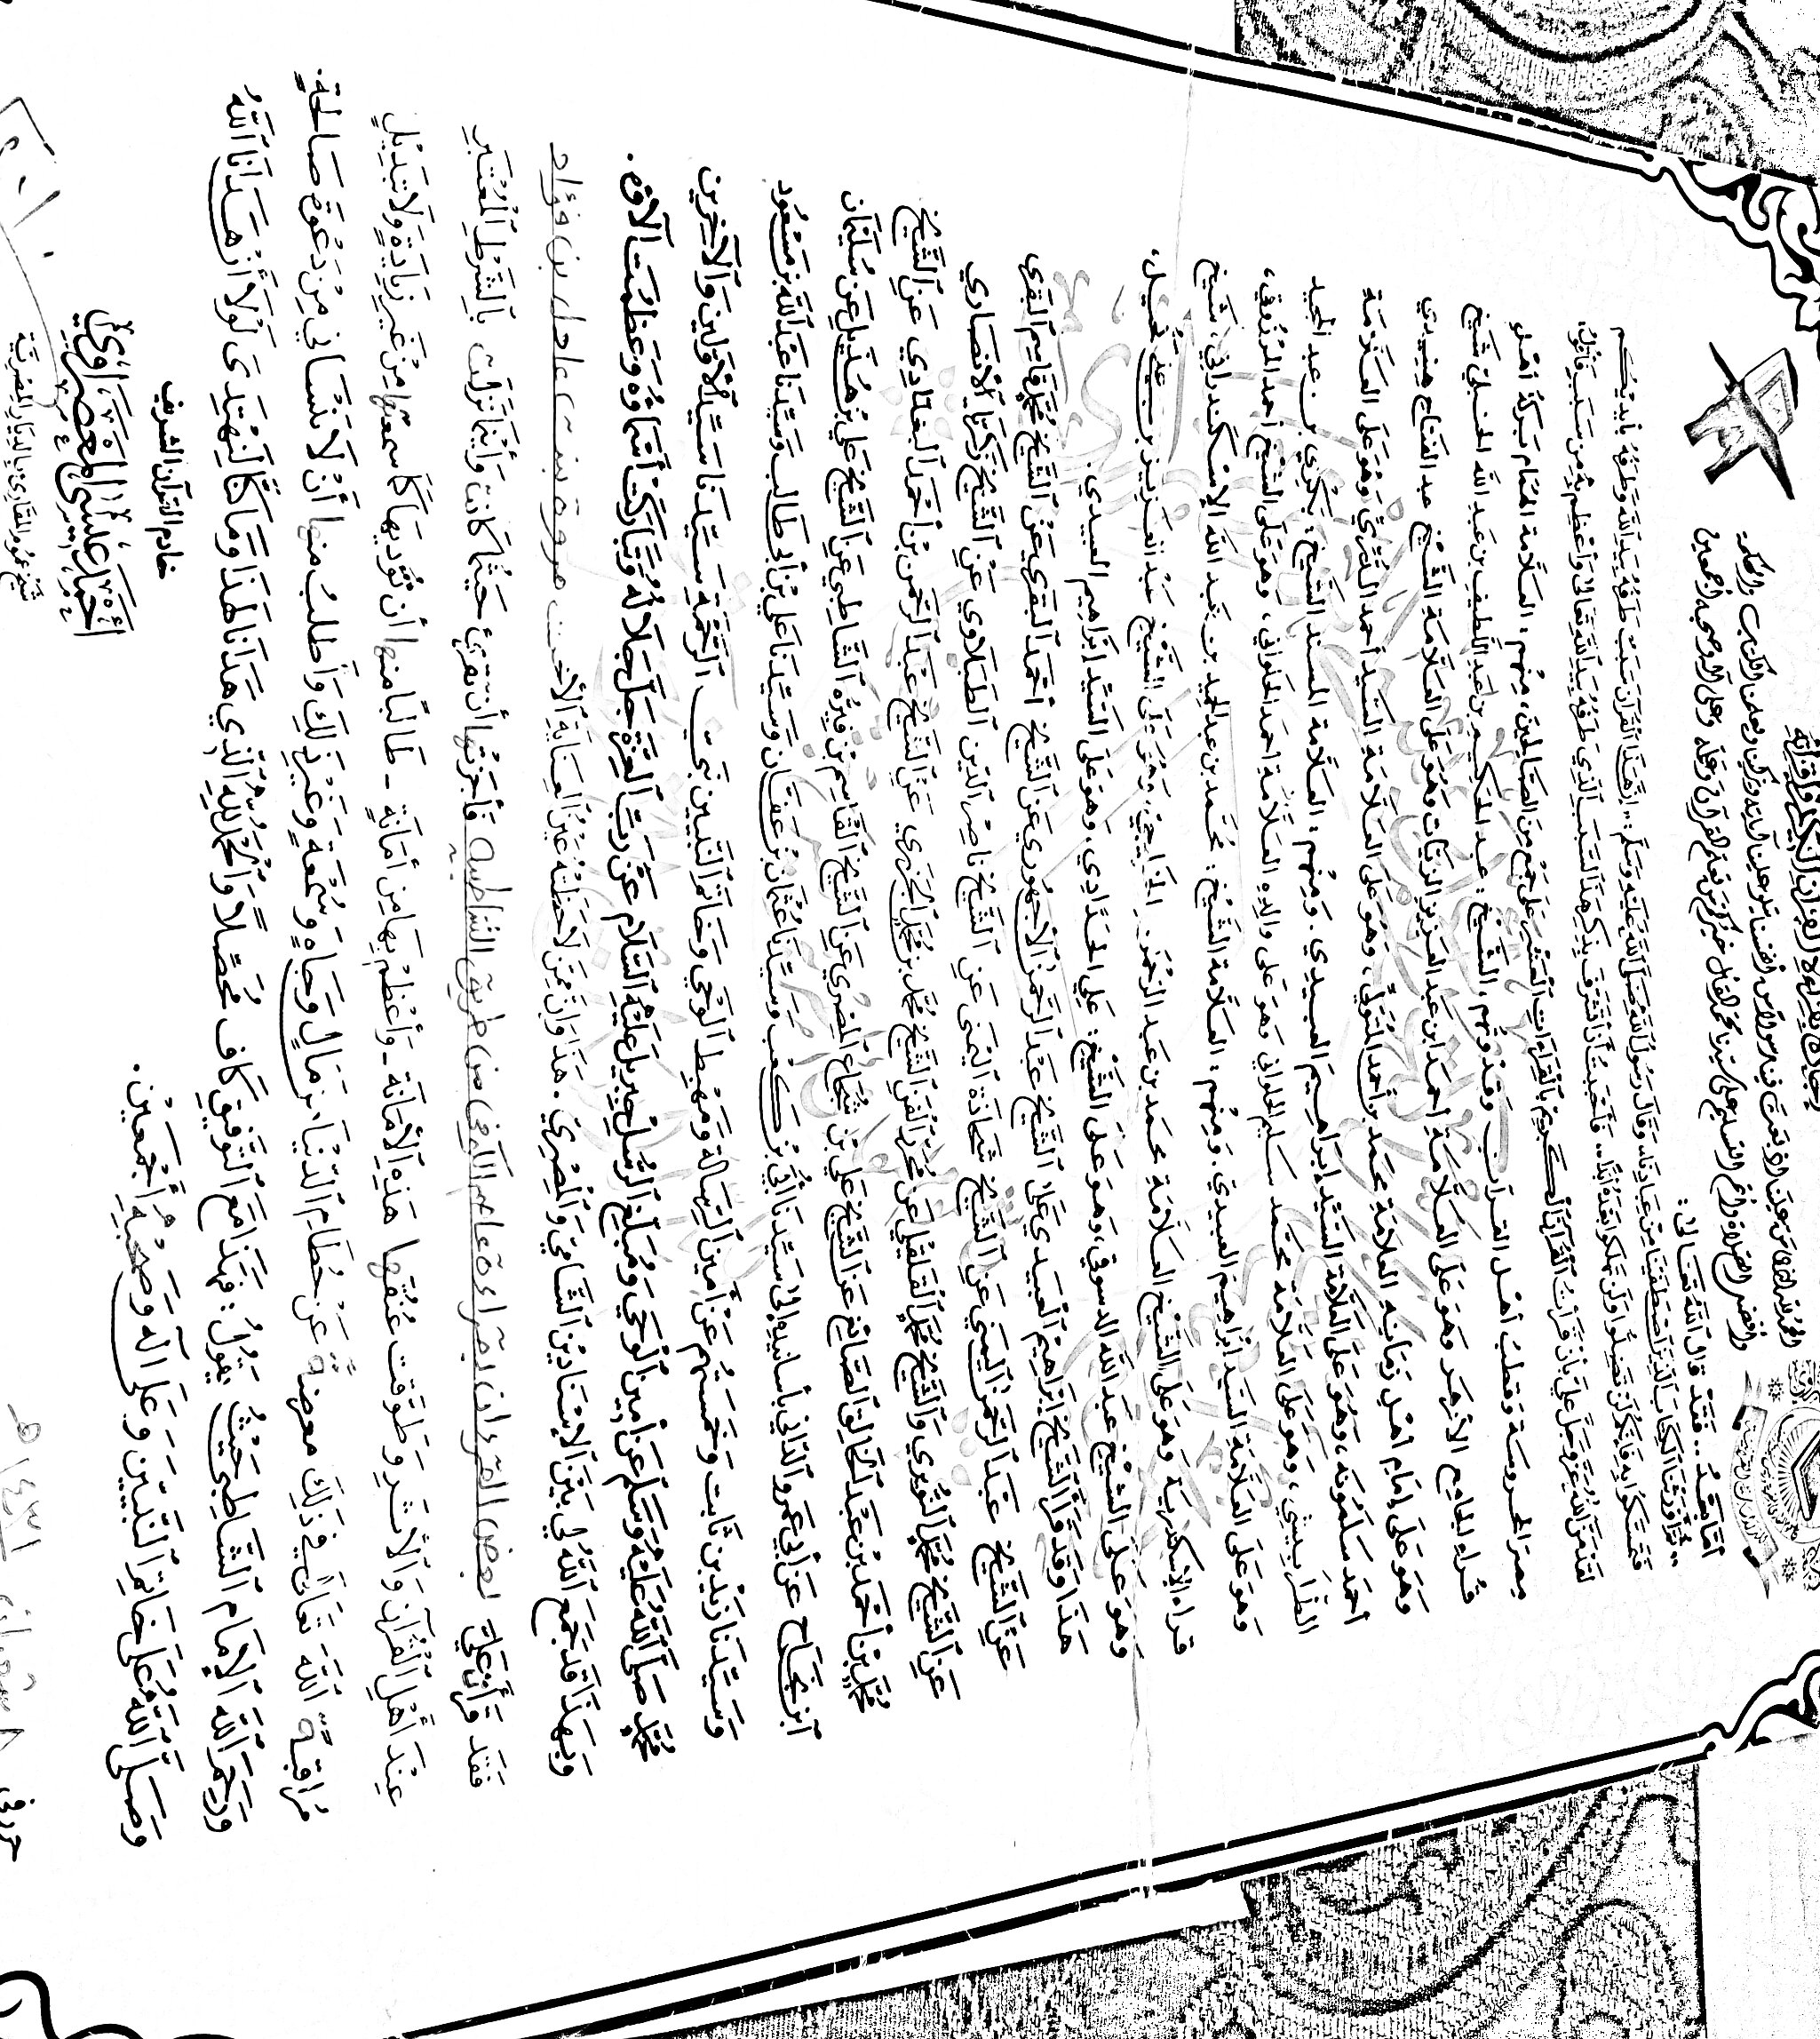 إجازة بقراءة القرآن الكريم وإقرائه
الحمد لله الذي منَّ علينا إذ بعث فينا رسولاً من أنفسنا يتلو علينا آياته ويزكينا ويعلمنا الكتاب والحكمة
وأفضل الصلاة وأتم التسليم على سيدنا محمد القائل خيركم من تعلم القرآن وعلمه وعلى آله وصحبه أجمعين
للدراسات القرآنية
أمّا بَعْدُ .. فَقَدْ قال اللَّهُ تَعَالىٰ :
,, ثُمَّ أَوْرَثْنَا الكِتَابَ الَّذِينَ اصْطَفَيْنَا مِنْ عِبَادِنَا,, وَقَالَ رَسُولُ اللَّهِ صَلَّى اللَّهُ عَلَيْهِ وَسَلَّم : ,, إنَّ هَذَا القُرآنَ سَبَبٌ طَرَفُهُ بِيَدِ اللَّهِ وَطَرَفُهُ بأيديْكُم
فَتَمَسَّكُوا بِهِ فَإنَّكُمْ لَنْ تَضِلُّوا وَلَن تهلكوا بَعْدَهُ أبَدًا,, فَأَحْبَبتُ أَن أتَشَرَّفَ بِذِكرِ هَذَا السَّبَبِ الَّذِي طَرَفُهُ بِيَدِ اللَّهِ تَعَالىٰ وَأعْظِم بِهِ مِن سَبَبٍ فَأقُولُ :
لَقَدْ مَنَّ اللَّهُ عَزَّ وَجَلَّ عليَّ بأنْ قَرَأتُ القُرآنَ الكَرِيمَ بالقِرَاءَاتِ العَشْرِ عَلَى جَمْعٍ مِنَ الصَّالِحِينَ، مِنْهم : العَلَّامة الهُمَام بَركَةُ أهْلِ
مِصرَ المحروسَة وَقطبُ أهْل القرآن وَقدْوتُهم، الشَّيْخ : عبد الحكيم بن عَبدِ اللَّطيف بن عَبدِ اللَّه الحنبليّ شَيخ
قُراءِ الجامِع الأزهَر وَهوَ عَلَى العَلَّامَةِ أحمدَ ابن عَبد العَزيزِ الزيّات وَهُوَ عَلَى العَلَّامَةِ الشَّيْخ عبد الفتاح هنيدي
وَهَوَ عَلَى إمَامِ أهْلِ زَمَانِه العلامَةِ محمّد بن أحمد المُتَوَليِّ ، وَهُوَ عَلَى العَلَّامَةِ السَّيد أحمد الدُّرّيّ وَهُوَ عَلَى العَلَّامَة
أحمَد سَلَمُونَه ، وَهُوَ عَلَى العَلَّامَة السَّيْد إبرَاهِيمَ العبيدِي . وَمِنْهم : العَلَّامة المسند الشَّيخ : بَكْرِي بن عبد المجيد
الطّرَابِيشي ، وَهَوَ عَلَى العَلَّامَة محمَّد سَليم الحلواني وَهوَ عَلى والِدِهِ العَلَّامَةِ أحمَد الحلواني ، وَهوَ عَلَى الشيْخ أحمد المرْزُوقي ،
وَهوَ عَلَى العَلَّامَةِ السَيد إبْرَاهِيمَ العبيديّ . وَمِنْهم : العَلَّامة الشَّيْخ : مُحَمَّد بن عبد الحميد بن عبد اللَّه الإسْكَندراني ، شَيخ
قراء الإسكندرية وَهوَ عَلَى الشَّيْخ العَلَّامَةِ محمَد بن عَبد الرَحْمَن الخَليجِيّ، وَهُوَ عَلَى الشَّيْخ عَبْد العَزِيز بن عَلَيّ كُحَيل ،
وَهوَ عَلَى الشيْخ عَبد اللَّه الدسوقي ، وَهوَ عَلَى الشَّيْخ : عَلي الحَدَّادِي . وَهوَ عَلَى السَيّد إبَراهِيم العبيدي .
هَذَا وَقَد قَرَأ الشَّيْخ إبْرَاهِيْم العُبَيدي عَلىٰ الشَّيخ عَبْد الرَّحمن الأجْهُوري عَن الشَّيخ أحْمَد البَقَري عَنْ الشَّيخ مُحمَّد قَاسِم البَقَري
عَنْ الشَّيخ عَبْد الرَّحمن اليمَني عَنِ الشَّيخ شَحاذَة اليْمَنى عَنِ الشَّيخ ناصِر الدّين الطَبَلَاوي عَنِ الشَّيخ زَكَريّا الأنصَاري
عَنِ الشَّيخ مُحمَّد النُّوَيري وَالشَّيخ مُحمَّد القَلقيْلي عَن مُحَرّر الفَنّ الشَّيخ مُحمَّد بن مُحمَّد الجَزري عَنْ الشَّيخ عَبْد الرَّحمن بنْ أحْمَد البغدَادِي عَنِ الشَّيخ
مُحمَّد بْن أحْمَد بْن عَبد الخَالِق الصَّائِغ عَن الشَّيخ عَلي بْن شُجَاع المِصْري عَنِ الشَّيخ القَاسِم بْن فِيرُّه الشَّاطِبي عَنِ الشَّيخ عَلي بْن هُذَيل عَن سُلَيْمَان
ابن نَجَاح عَن أبي عَمرو الدّاني بأسانيدِهِ إلىٰ سَيِّدنَا أُبَيّ بْن كَعْب وَسَيِّدنَا عُثْمَان بْن عَفَّان وَسَيِّدنَا عَلي بْن أبى طَالِب وَسَيِّدنَا عَبْد اللَّه بن مَسْعُود
وَسَيِّدَنَا زَيْد بن ثَابت وَخَمسَتُهم عَنْ أمِين الرِّسَالة وَمَهْبِط الوَحْي وَخَاتَم النَّبيين نَبيّ الرَّحْمَةِ سَيِّدنَا سَيِّد الأوّلين وَالآخِرين
مُحمَّدٍ صَلَّى اللَّهُ عَلَيْهِ وَسَلَّم عَن أمِين الوَحْي وَمُبَلِّغِ الرُّسلِ جِبريلَ عَلَيْهِ السَّلَام عَنْ رَبِّ العِزَّةِ جَلَّ جَلَالُهُ وَتَبَارَكَتْ أسْمَاؤُهُ وَعَظُمَت آلآؤه .
وَبهَذَا قَد جَمَعَ اللَّهُ لي بَيْنَ الإسْنَادَيْن الشَّاميّ وَالمِصْرِيّ . هَذَا وَإنَّ مِمَّن لَاحَظَتْهُ عَيْنُ العِنَايَةِ الأخت مروة بنت عادل بن فؤاد
فَقَد قَرَأَتْ عَلَيَّ بعض القرءان بقراءة عاصم الكوفى من طريق الشاطبيه فَأجَزتُها أن تقرئ حَيثُما كَانت وَأيْنَمَا نَزَلَت بالشَرْطِ المُعْتَبَرِ
عِنْدَ أَهْلِ القُرآن وَالأثرِ وَطَوَّقت عُنُقَها هَذِهِ الأمَانَة - وَأعْظِمْ بِهَا مِن أمَانَةٍ - طَالبًا منها أن تُؤديهَا كَمَا سمعتها مِنْ غَيرِ زِيَادَةٍ وَلَا تبَدِيْلٍ
مُراقبةً اللَّهَ تَعَالىٰ في ذَلِكَ معرضةً عَنْ حُطَامِ الدّنْيَا مِن مَالٍ وَجَاهٍ وَسُمْعَةٍ وَغَيْرِ ذَلِكَ وَأَطلبُ منها أنْ لَا تنْسَاني مِنْ دَعْوةٍ صَالحةٍ .
وَرَحِمَ اللَّهُ الإمَام الشَّاطِبي حَيْثُ يَقُولُ : فَهَذَا مَعَ التَّوْفِيقِ كَافٍ مُحَصِّلاً وَالحَمْدُ لِلَّهِ الَّذِي هَدَانَا لَهَذَا وَمَا كنَّا لِنَهْتَدِىَ لَوْلَا أنْ هَدَانَا اللَّهُ
وَصَلَّى اللَّهُ عَلَى خَاتِمِ النَّبيّيِنَ وَعَلَى آله وَصَحْبِهِ أجْمَعَيْن .
خادم القرآن الشريف
أحْمَد عِيسَى المعْصَرَاوِي
شَيْخ عُمُوم المقَارِئ بالدِيَارِ المِصْرِيَّة
حرر في ٨ شعبان ١٤٣١هـ